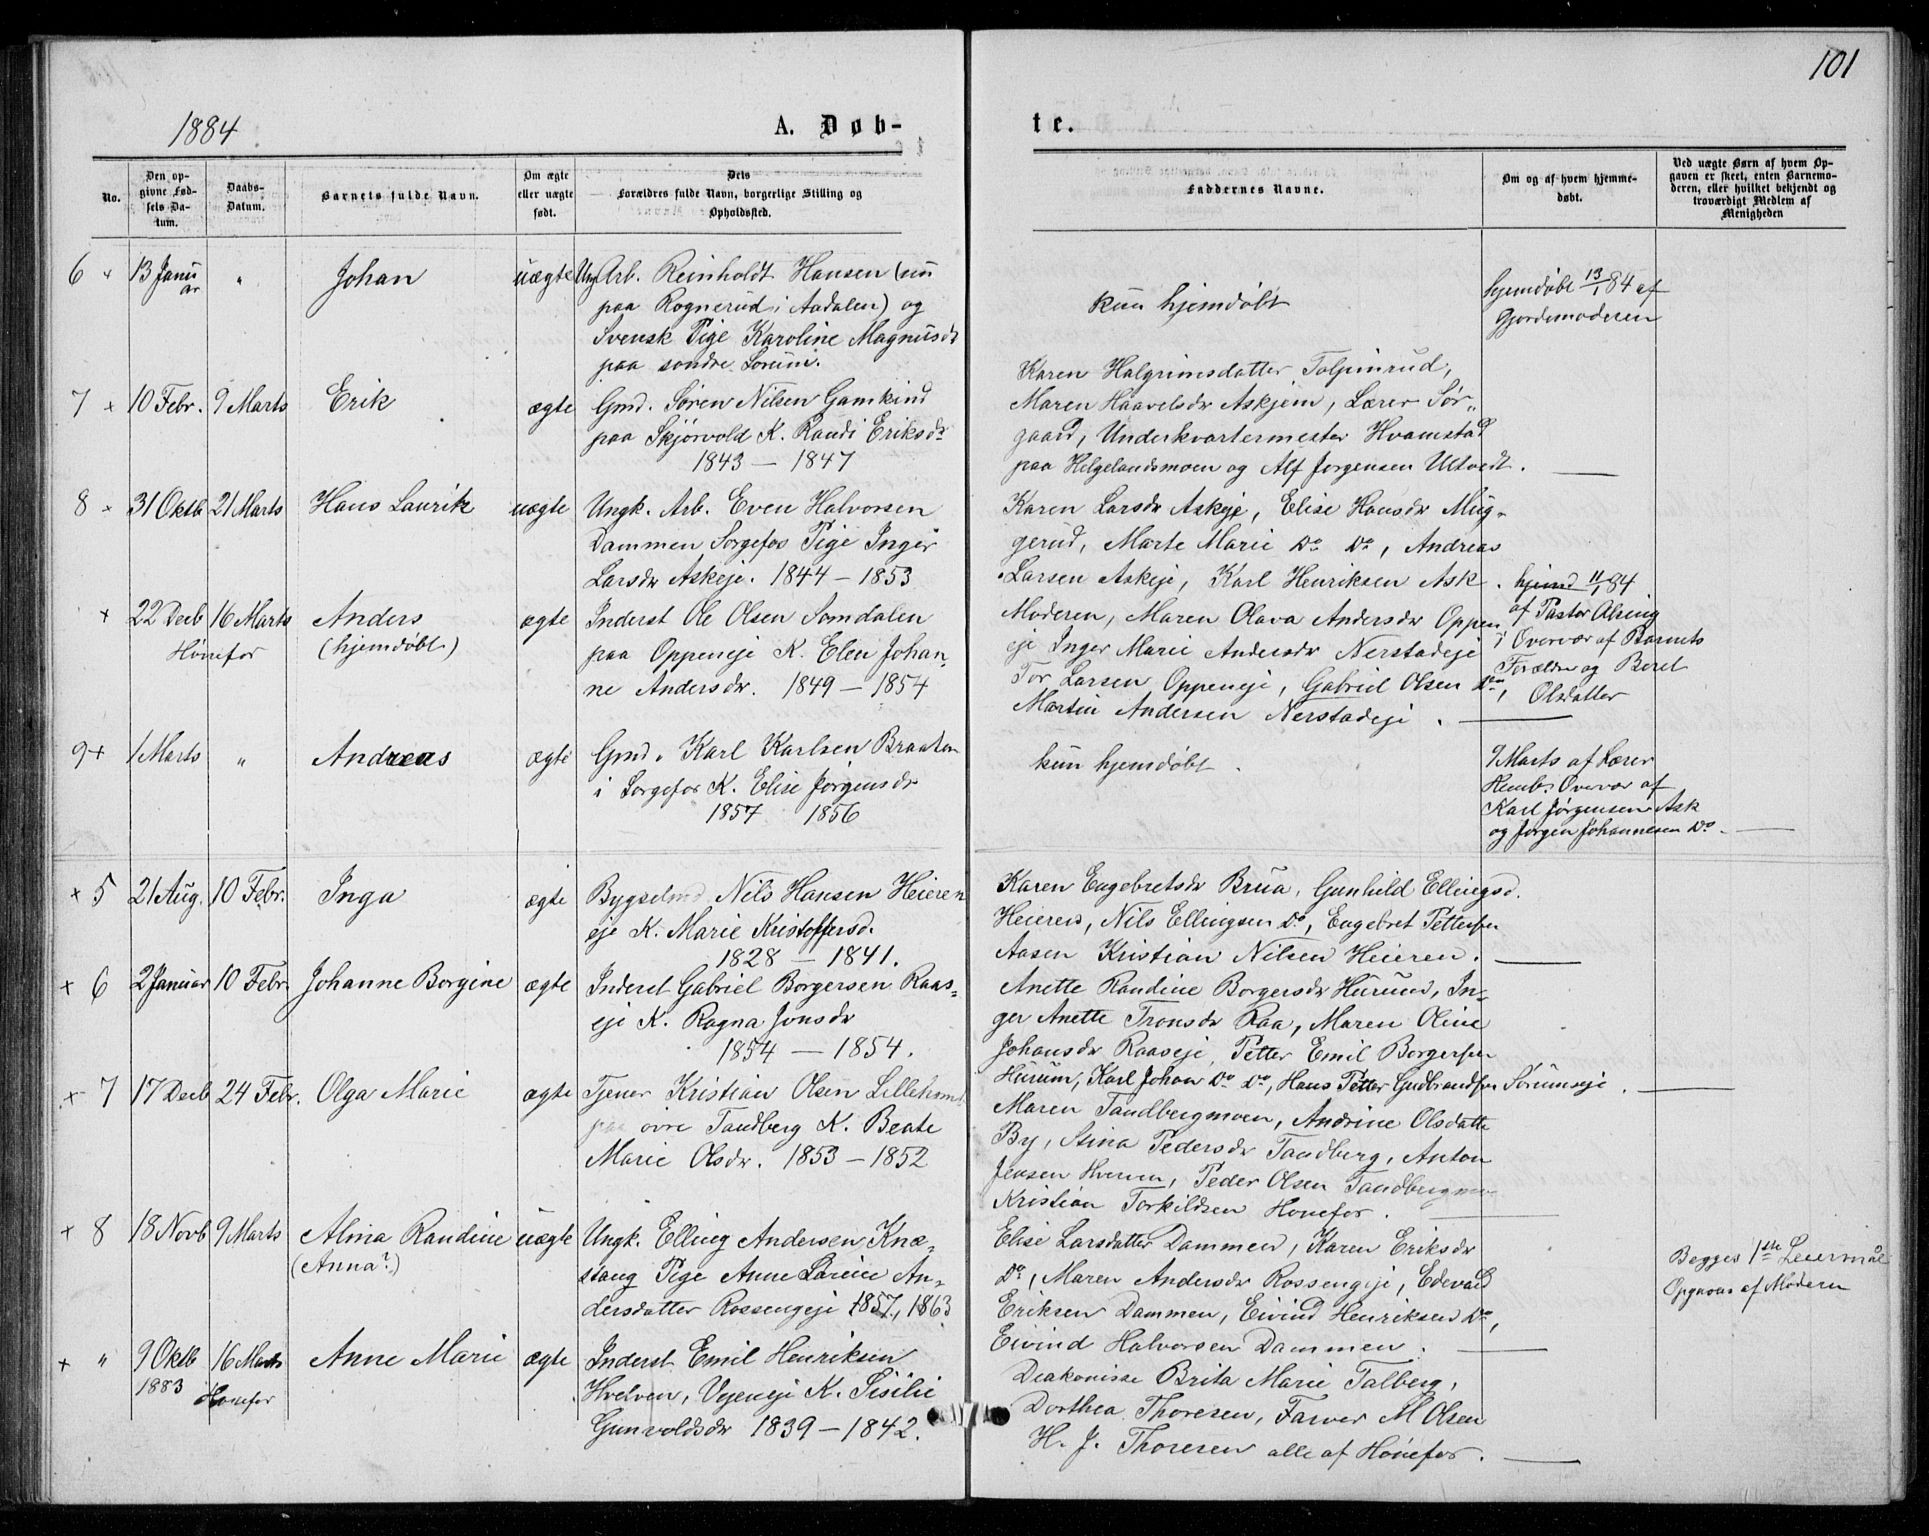 101
1884
A. Døb-
te.
No.
Den op-
givne Fød-
sels Da-
tum.
Daabs-
Datum.
Barnets fulde Navn.
Om ægte
eller uægte
født.
Dets
Forældres fulde Navn, borgerlige Stilling og
Opholdssted.
Faddernes Navne.
Om og af hvem hjemme-
døbt.
Ved uægte Børn af hvem Op-
gaven er skeet, enten Barnemo-
deren, eller hvilket bekjendt og
troværdigt Medlem af
Menigheden
6 × 13 Janu
ar
"
Johan
uægte
Ung Arb. Reinholdt Hansen (nu
paa Rognerud i Aadalen) og
Svensk Pige Karoline Magnusdr
paa søndre Sørum.
kun hjemdøbt
hjemdøbt 13/1 84 af
Gjordemoderen
7 × 10 Febr. 9 Marts
Erik
ægte
Gmd. Søren Nilsen Gamkind
paa Skjørvold K. Randi Eriksdr
1843 — 1847
Karen Halgrimsdatter Tolpinrud,
Maren Haavelsdr Askjem, Lærer Sør-
gaard, Underkvartermester Hvamstad
paa Helgelandsmoen og Alf Jørgensen Ultvedt.
8 × 31 Oktb 21 Marts
Hans Laurits
uægte
Ungk. Arb. Even Halvorsen
Dammen Sørgefos Pige Inger
Larsdr Askeje. 1844 — 1853
Karen Larsdr Askeje, Elise Hansdr Mug-
gerud, Marte Marie Do Do, Andreas
Larsen Askeje, Karl Henriksen Ask.
× 22 Decb 16 Marts
Hønefos
Anders
(hjemdøbt)
ægte
Inderst Ole Olsen Somdalen
paa Oppeneje K. Elen Johan-
ne Andersdr. 1849 — 1854
Moderen, Maren Olava Andersdr Oppen
eje Inger Marie Andersdr Nerstadeje
Tor Larsen Oppeneje, Gabriel Olsen Do,
Martin Andersen Nerstadeje.
hjemd 11/1 84
af Pastor Alsing
i Overvær af Barnets
Forældre og Beret
Olsdatter
9 + 1 Marts
"
Andreas
ægte
Gmd. Karl Karlsen Braaten
i Sørgefos K. Elise Jørgensdr
1857 1856
kun hjemdøbt.
9 Marts af Lærer
Hemb. Overvær af
Karl Jørgensen Ask
og Jørgen Johannesen Do.
× 5 21 Aug. 10 Febr.
Inga
ægte
Bygselmd Nils Hansen Heieren
eje K. Marie Kristoffersd.
1828 — 1841.
Karen Engebretsdr Brua, Gunhild Ellingsd.
Heieren, Nils Ellingsen Do, Engebret Pettersen
Aasen Kristian Nilsen Heieren.
× 6 2 Januar 10 Febr.
Johanne Borgine
ægte
Inderst Gabriel Borgersen Raas-
eje K. Ragna Jonsdr
1854 — 1854.
Anette Randine Borgersdr Hurum, In-
ger Anette Tronsdr Raa, Maren Oline
Johansdr Raaseje, Petter Emil Borgersen
Hurum, Karl Johan Do Do, Hans Petter Gudbrandsen Sørumseje.
× 7 17 Decb 24 Febr.
Olga Marie
ægte
Tjener Kristian Olsen Lillehamd
paa øvre Tandberg K. Beate
Marie Olsdr. 1853 — 1852
Maren Tandbergmoen, Andrine Olsdatte
By, Stina Pedersdr Tandberg, Anton
Jensen Hverven, Peder Olsen Tandbergmo
Kristian Torkildsen Hønefos.
× 8 18 Novb 9 Marts
Alina Randine
(Anna?)
uægte
Ungk. Elling Andersen Knæ-
stang Pige Anne Lorine An-
dersdatter Rossengeje 1857, 1863
Elise Larsdatter Dammen, Karen Eriksdr
Do, Maren Andersdr Rossengeje, Edevard
Eriksen Dammen, Eivind Henriksen Do,
Eivind Halvorsen Dammen.
Begges 1ste Leiermål
Opgaven af Moderen
× " 9 Oktb 16 Marts
1883 Hønefos
Anne Marie
ægte
Inderst Emil Henriksen
Hvelven, Vejeneje K. Sisilie
Gunvoldsdr 1839 — 1842.
Diakonisse Brita Marie Talberg,
Dorthea Thoresen, Farver M Olsen
H. J. Thoresen alle af Hønefos.